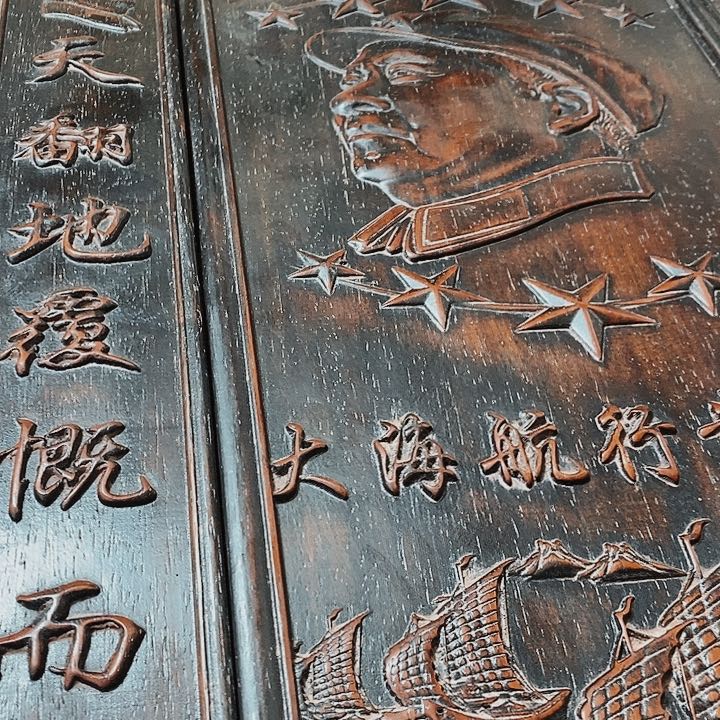 天翻地覆慨而
大海航行